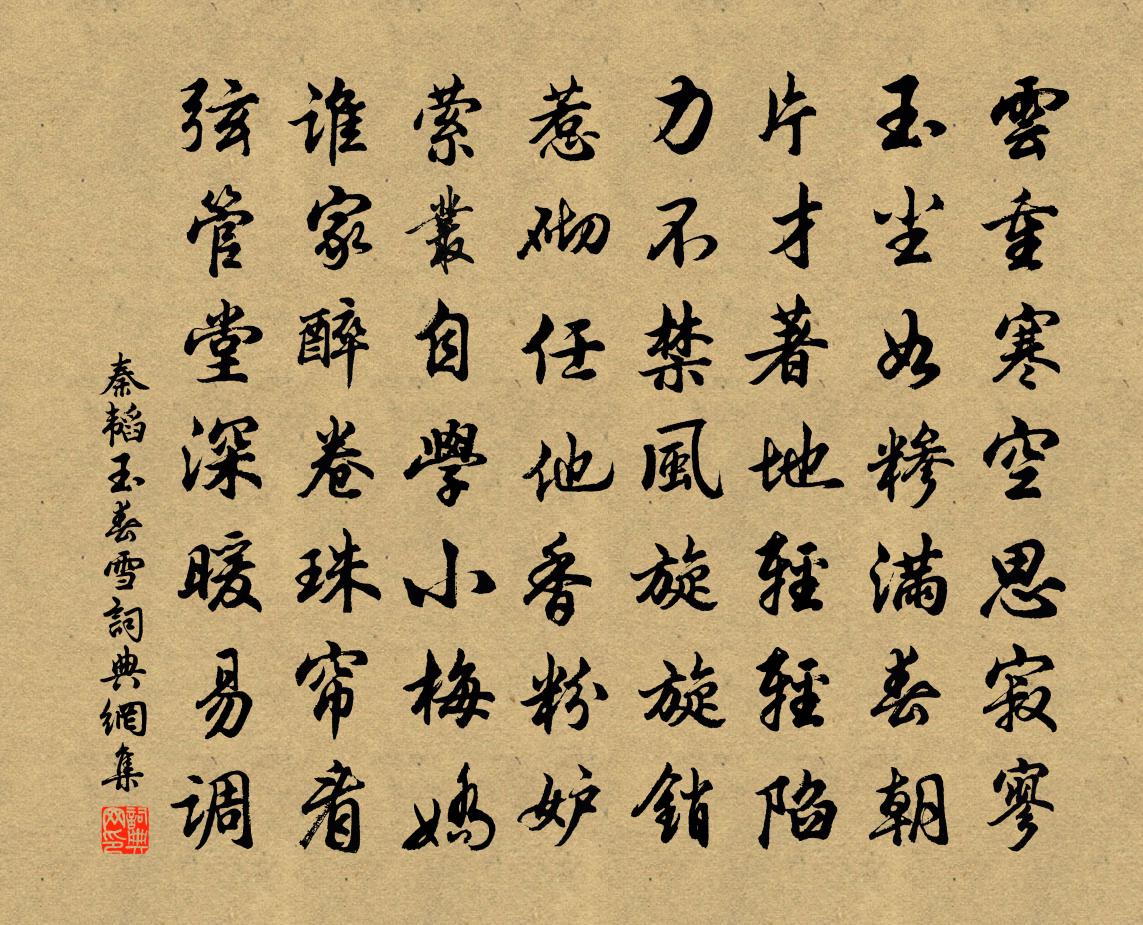 雲重寒空思寂寥
玉尘如糁满春朝
片才著地輕輕陷
力不禁風旋旋銷
惹砌任他香粉妒
萦叢自學小梅嬌
谁家醉卷珠帘看
弦管堂深暖易调
秦韬玉春雪詞典網集
詞典网印